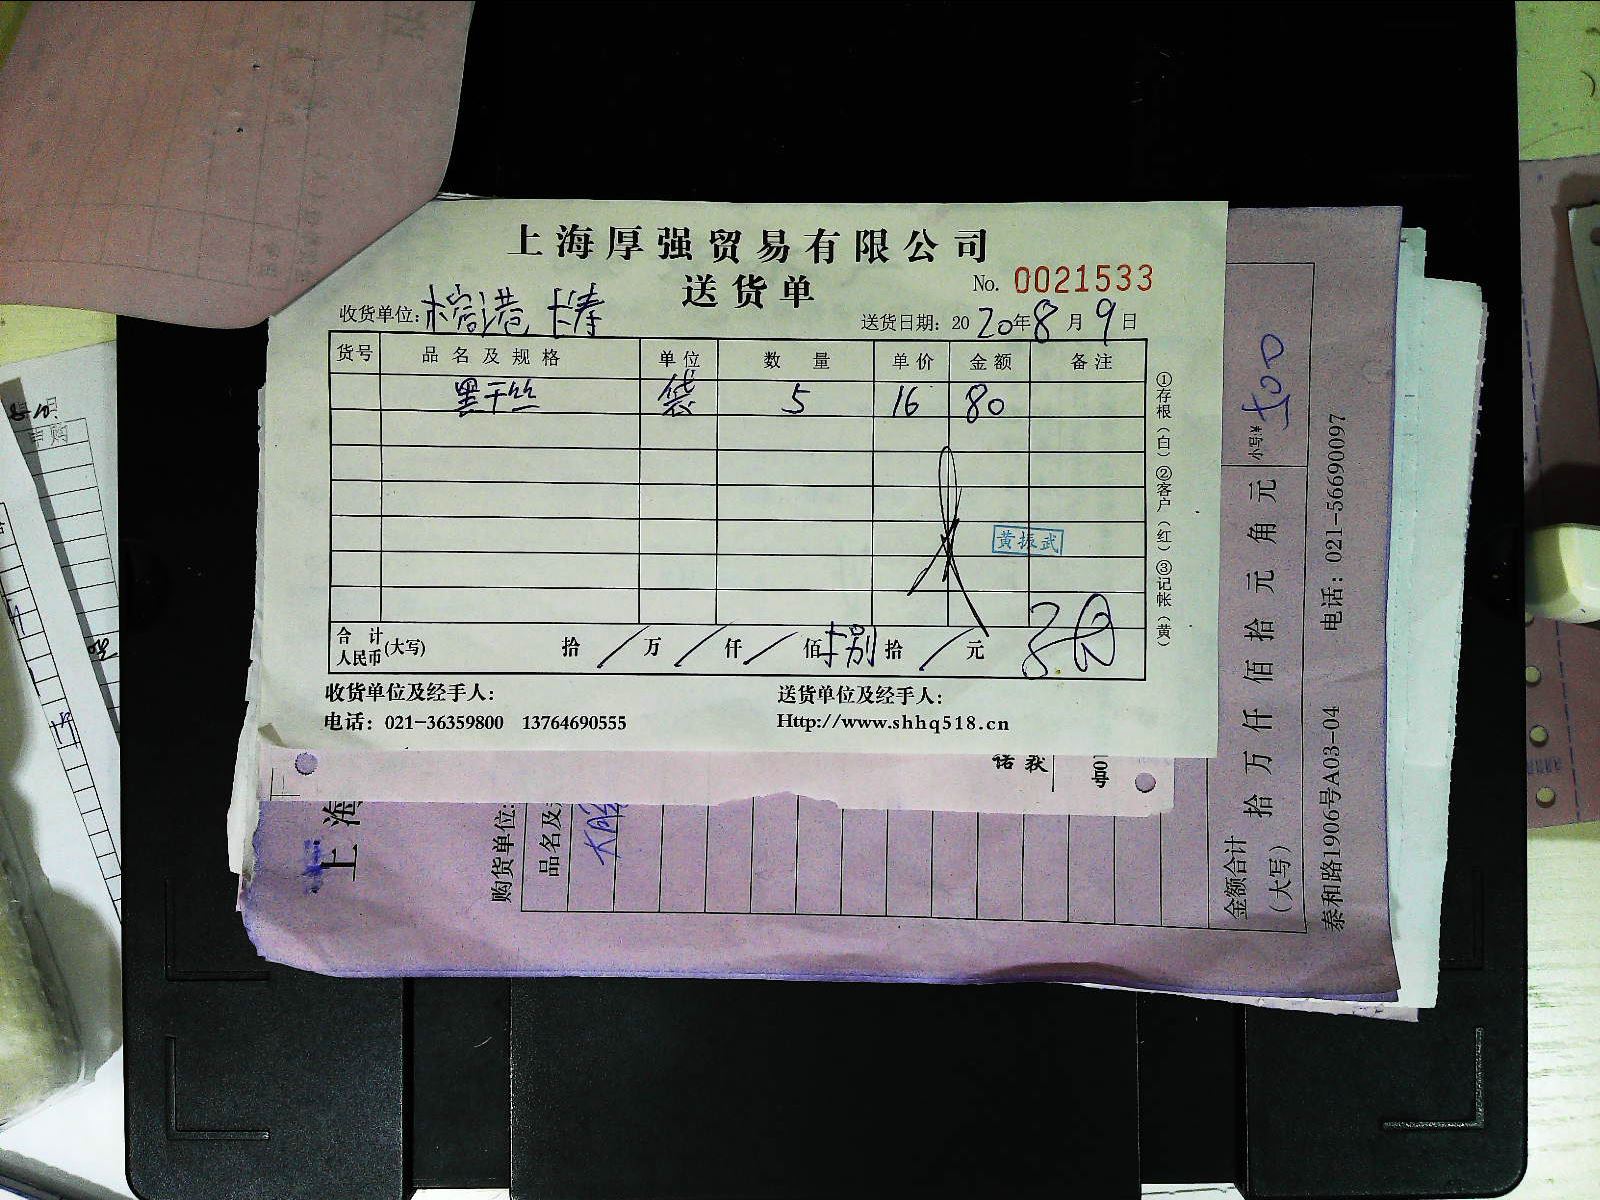 上海厚强贸易有限公司
送货单
No. 0021533
收货单位:
送货日期: 2020年8月9日
货号 品名及规格 单位 数量 单价 金额 备注
墨干丝 袋 5 16 80
黄振武
合计人民币(大写) 拾 / 万 / 仟 / 佰 捌 拾 / 元
收货单位及经手人: 送货单位及经手人:
电话: 021-36359800 13764690555 Http://www.shhq518.cn
①存根(白) ②客户(红) ③记帐(黄)
上海
购货单位:
品名及
金额合计(大写) 拾万仟佰拾元角元 小写¥ 500
泰和路1906号A03-04 电话: 021-56690097
申购